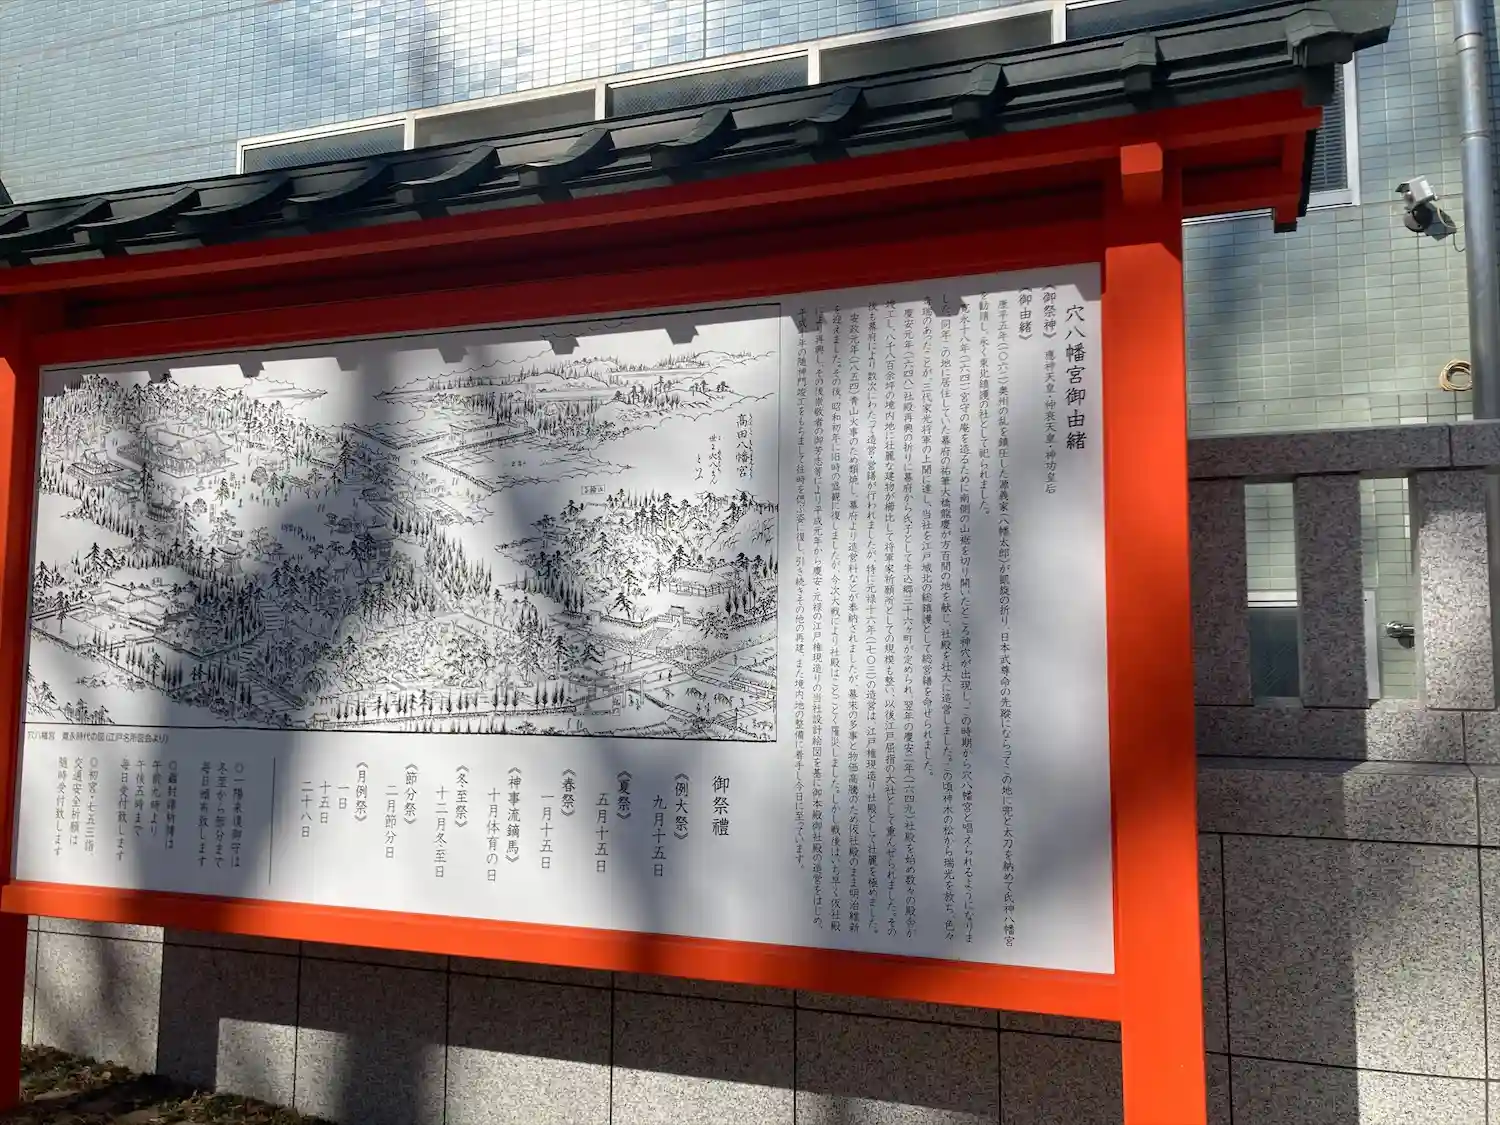 穴八幡宮御由緒
《御祭神》 應神天皇・仲哀天皇・神功皇后
《御由緒》
康平五年(一〇六二)奥州の乱を鎮圧した源義家(八幡太郎)が凱旋の折り、日本武尊命の先蹤にならってこの地に兜と太刀を納めて氏神八幡宮
を勧請し、永く東北鎮護の社として祀られました。
寛永十八年(一六四一)宮守の庵を造るために南側の山裾を切り開いたところ神穴が出現し、この時期から穴八幡宮と唱えられるようになりま
した。同年、この地に居住していた幕府の祐筆大橋龍慶が方百間の地を献じ、社殿を壮大に造営しました。この頃神木の松から瑞光を放ち、色々
奇瑞のあったことが、三代家光将軍の上聞に達し、当社を江戸城北の総鎮護として総営繕を命ぜられました。
慶安元年(一六四八)社殿再興の折りに幕府から氏子として牛込郷三十六ヶ町が定められ、翌年の慶安二年(一六四九)社殿を始め数々の殿舎が
竣工し、八千八百余坪の境内地に壮麗な建物が櫛比して将軍家祈願所としての規模も整い、以後江戸屈指の大社として重んぜられました。その
後も幕府により数次にわたって造営・営繕が行われましたが、特に元禄十六年(一七〇三)の造営は、江戸権現造り社殿として壮麗を極めました。
安政元年(一八五四)青山大事のため類焼し、幕府より造営料などが奉納されましたが、幕末の多事と物価高騰のため仮社殿のまま明治維新
を迎えました。その後、昭和初年に旧時の盛観に復しましたが、今次大戦により社殿はことごとく罹災しました。しかし戦後はいち早く仮社殿
により再興し、その後崇敬者の御芳志等により平成元年から慶安・元禄の江戸権現造りの当社設計絵図を基に御本殿御社殿の造営をはじめ、
平成十年の随神門竣工をもちまして往時を偲ぶ姿に復し、引き続きその他の再建、また境内地の整備に着手し今日に至っています。
高田八幡宮
世に穴八まん
といふ
穴八幡宮 寛永時代の図(江戸名所図会より)
御祭禮
《例大祭》
九月十五日
《夏祭》
五月十五日
《春祭》
一月十五日
《神事流鏑馬》
十月体育の日
《冬至祭》
十二月冬至日
《節分祭》
二月節分日
《月例祭》
一日
十五日
二十八日
○一陽来復御守は
冬至から節分まで
毎日頒布致します
○蟲封諸祈祷は
午前九時より
午後五時まで
毎日受付致します
○初宮・七五三詣
交通安全祈願は
随時受付致します